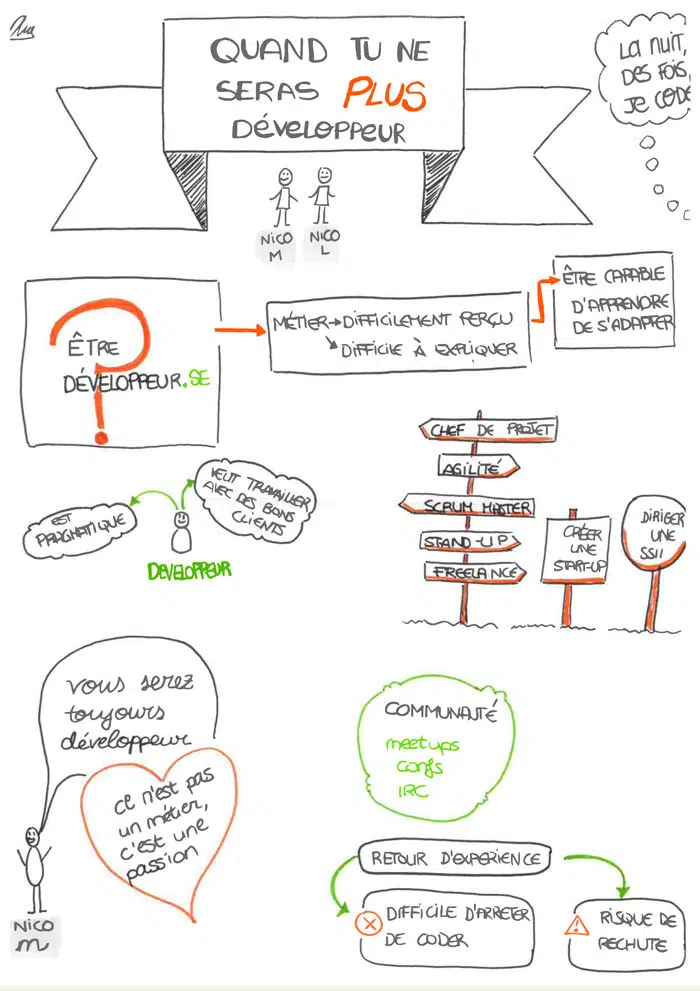 QUAND TU NE
SERAS PLUS
DÉVELOPPEUR
LA NUIT,
DES FOIS,
JE CODE
NICO
M
NICO
L
ÊTRE
DÉVELOPPEUR.SE
MÉTIER → DIFFICILEMENT PERÇU
↘ DIFFICILE À EXPLIQUER
ÊTRE CAPABLE
D'APPRENDRE
DE S'ADAPTER
EST
PRAGMATIQUE
VEUT TRAVAILLER
AVEC DES BONS
CLIENTS
DEVELOPPEUR
CHEF DE PROJET
AGILITÉ
SCRUM MASTER
STAND-UP
FREELANCE
CRÉER
UNE
START-UP
DIRIGER
UNE
SSII
vous serez
toujours
développeur
ce n'est pas
un métier,
c'est une
passion
NICO
m
COMMUNAUTÉ
meetups
confs
IRC
RETOUR D'EXPERIENCE
DIFFICILE D'ARRETER
DE CODER
RISQUE DE
RECHUTE